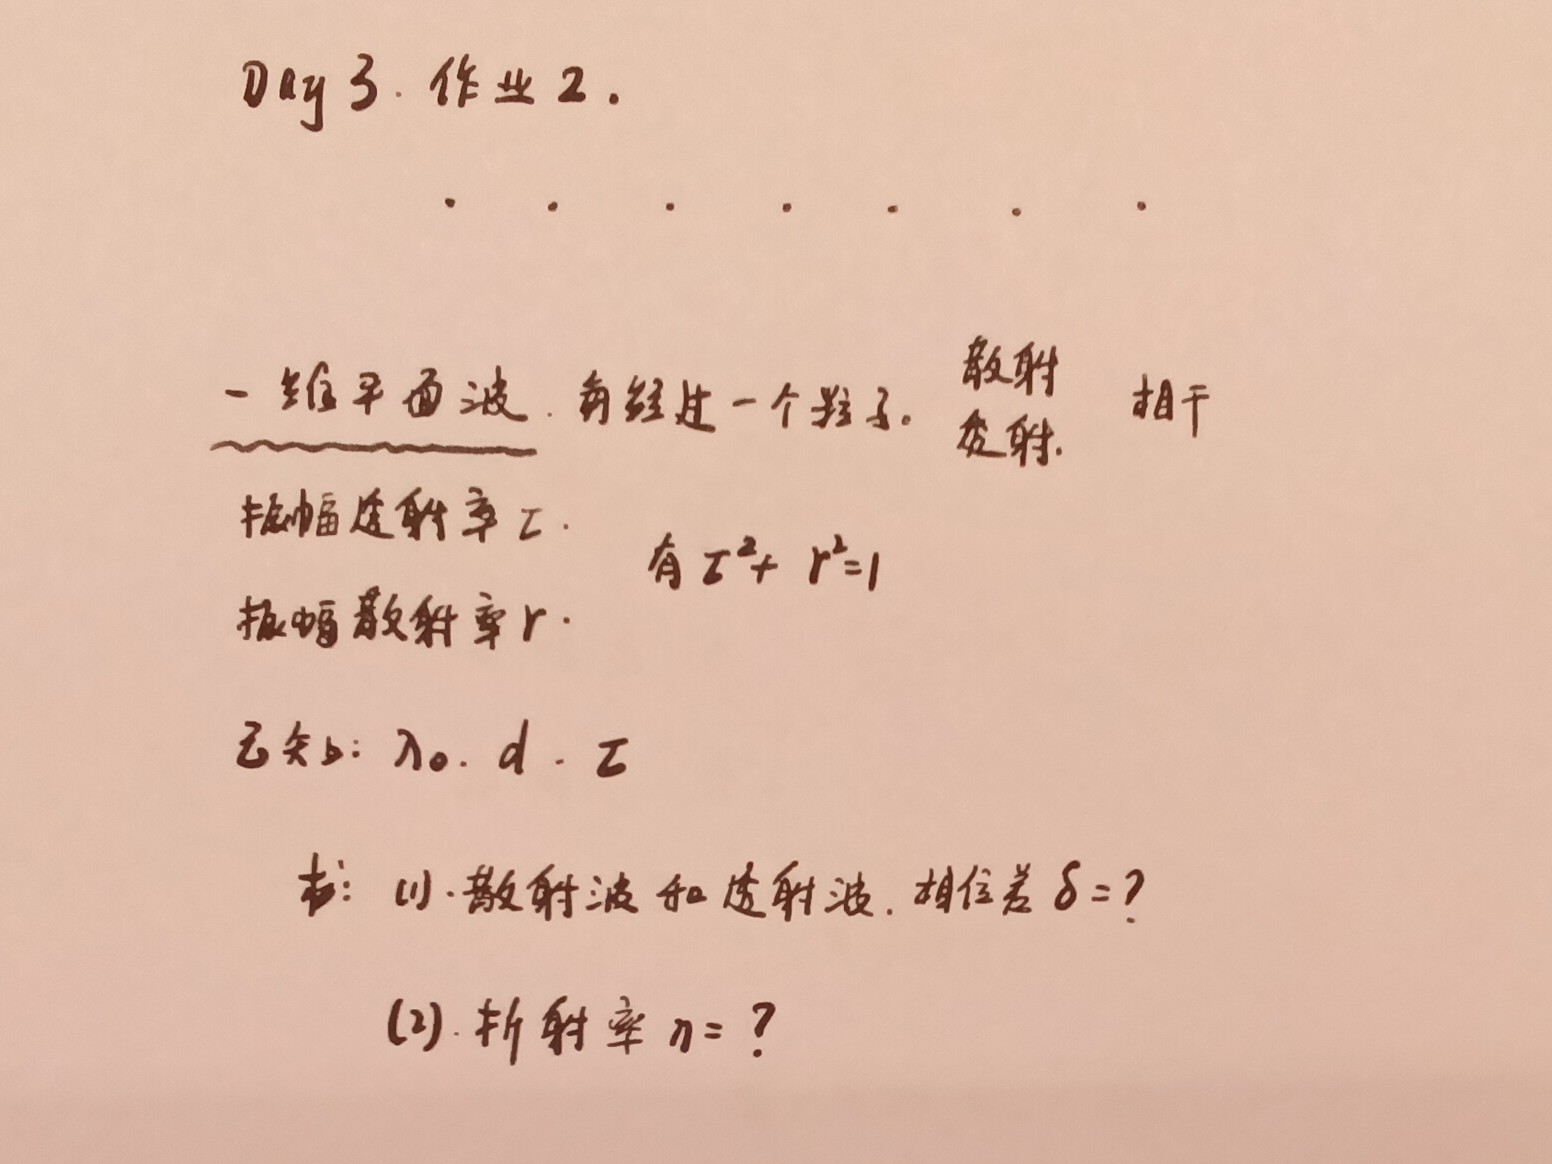 Day 3. 作业2.
一维平面波. 每经过一个粒子. 散射 透射. 相干
振幅透射率τ.
有τ²+r²=1
振幅散射率r.
已知: λ₀. d. τ
求: (1). 散射波和透射波. 相位差δ=?
(2). 折射率n=?